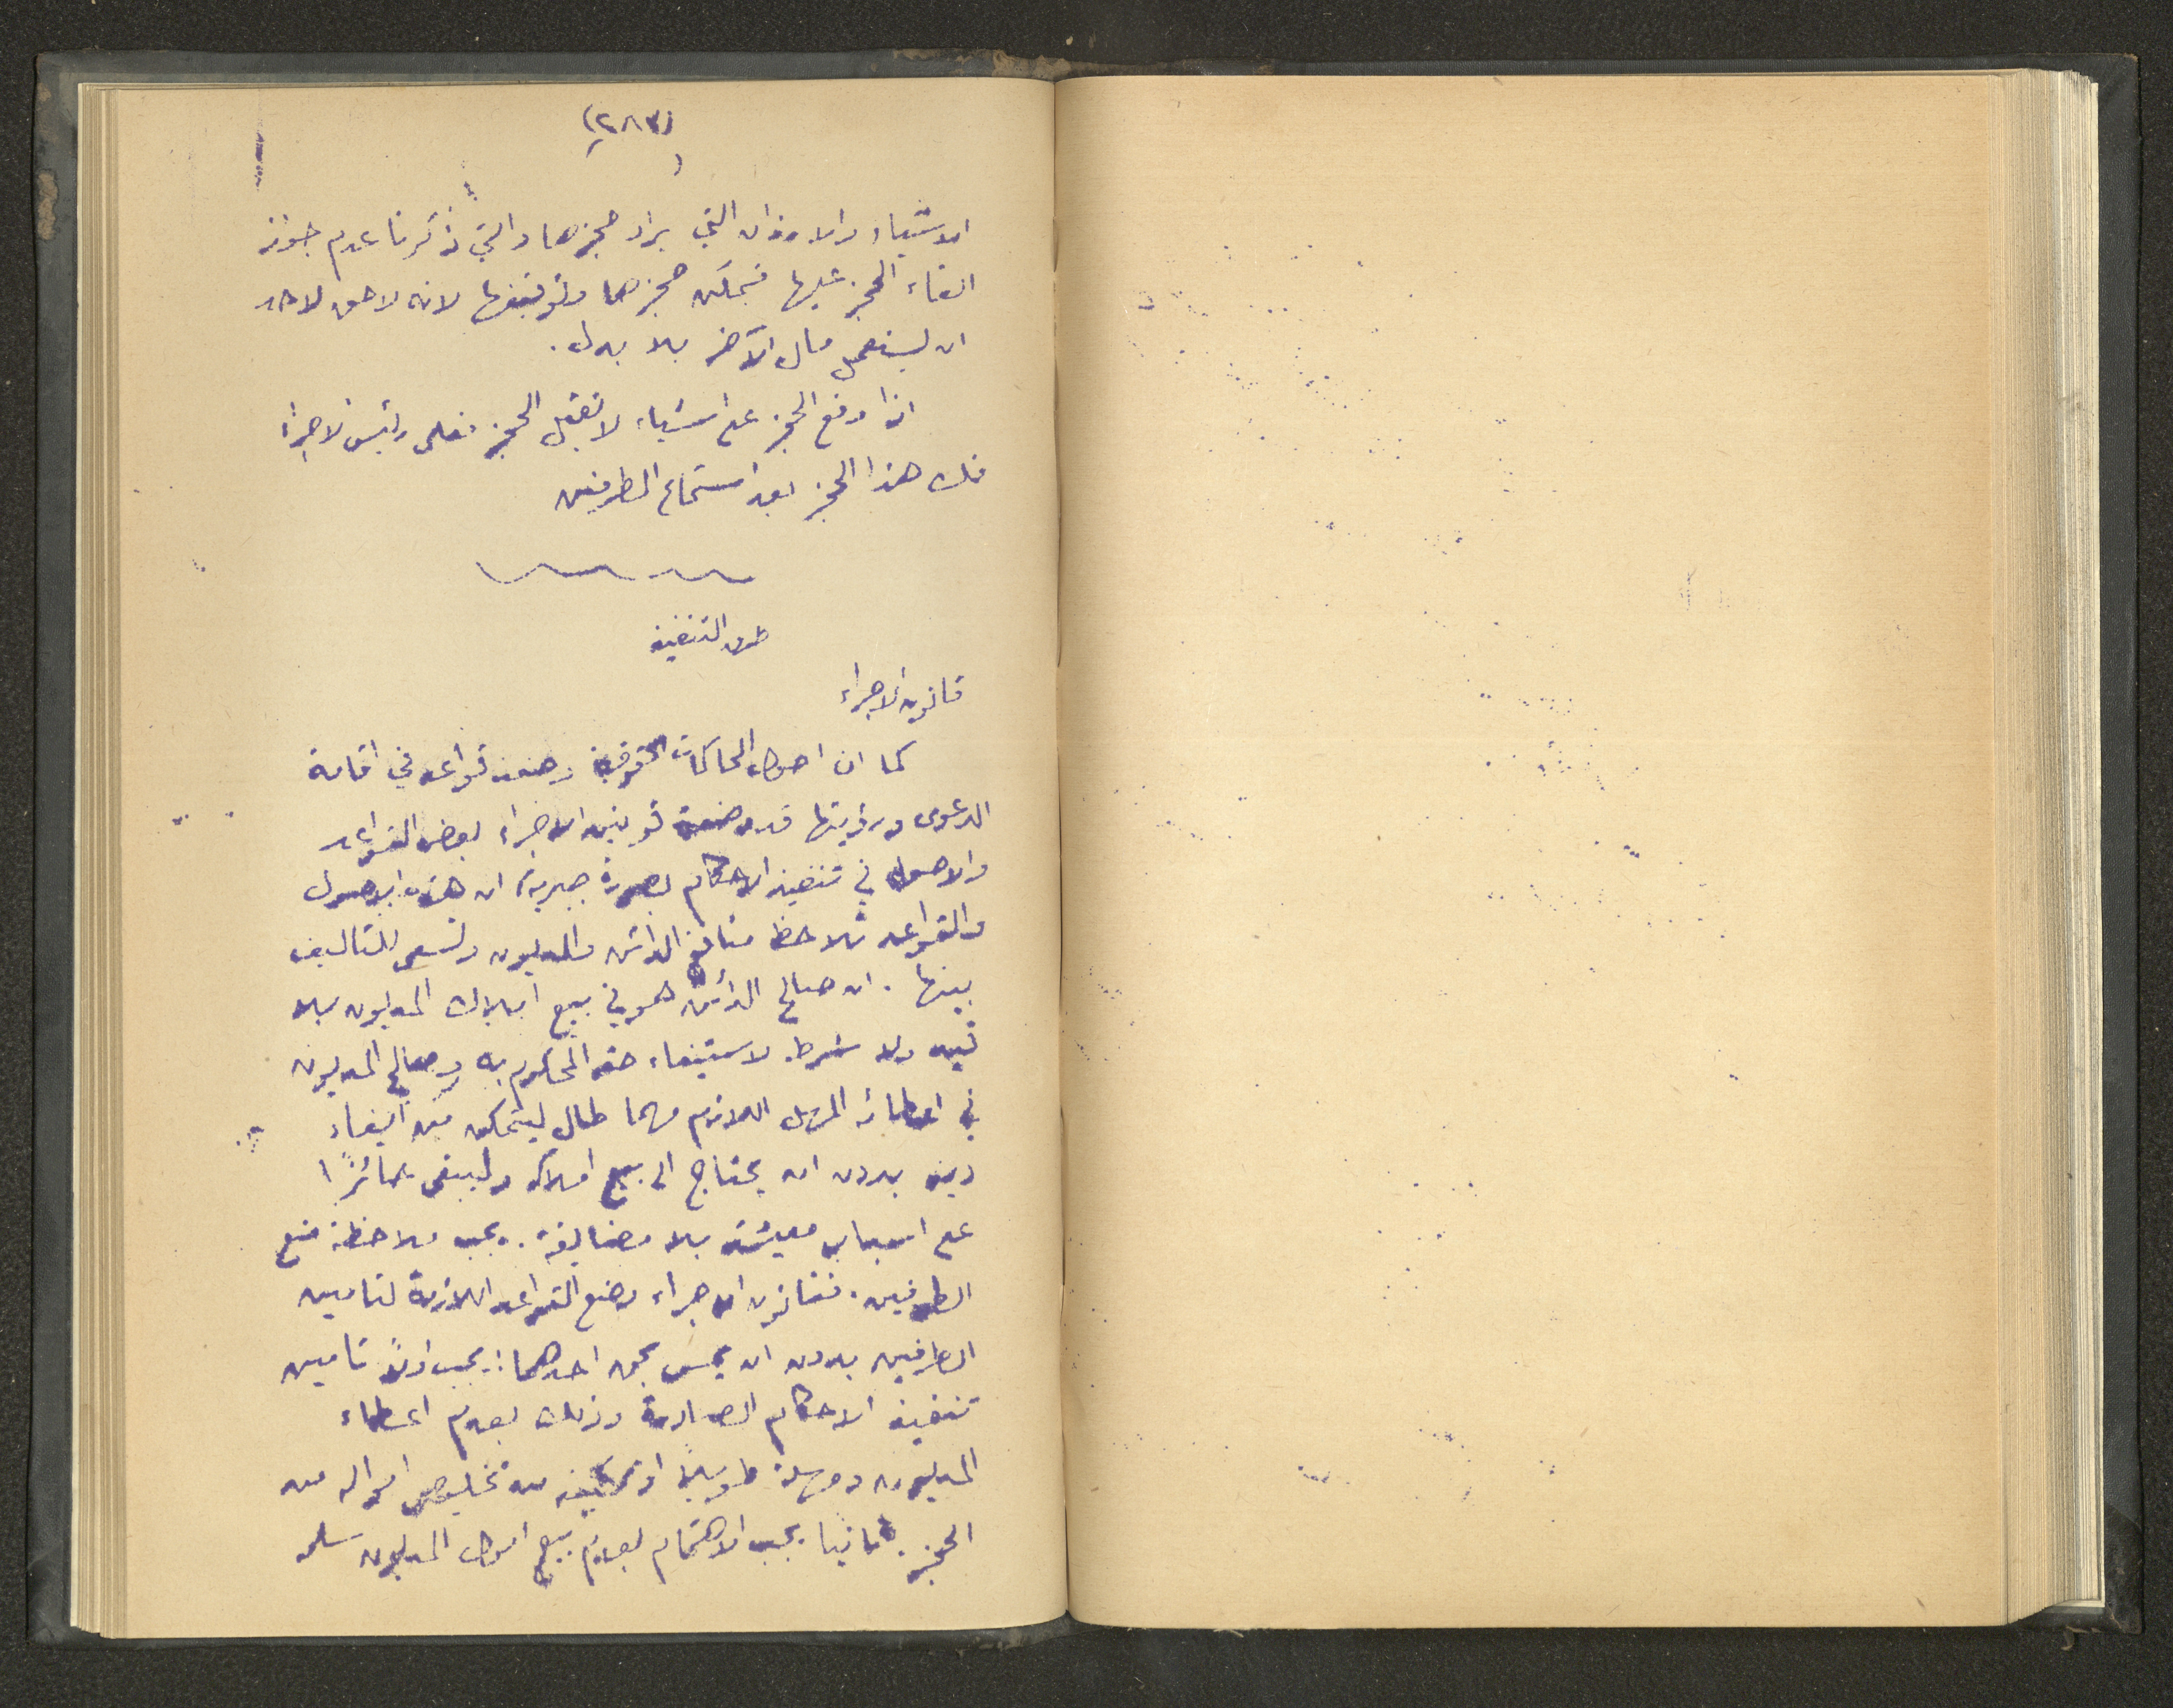 (٢٨٣)
الاشياء والاوزان التي يراد حجزها والتي ذكرنا عدم جواز
القاء الحجز عليها فيمكن حجزها وتوقيفها لانه لا حق لاحد
ان يستعمل مال الآخر بلا بدل.
اذا وقع الحجز على اشياء لا تقبل الحجز فعلى رئيس الاجراء
فك هذا الحجز بعد استماع الطرفين
طرق التنفيذ
قانون الاجراء
كما ان اصول المحاكمات الحقوقية وضعت قواعد في اقامة
الدعوى ورؤيتها قد وضعت قوانين الاجراء بعض القواعد
والاصول في تنفيذ الاحكام بصورة جبرية، ان هذه الاصول
والقواعد تلاحظ منافع الدائن والمديون وتسعى للتاليف
بينها. ان صالح الدائن هو في بيع املاك المديون بلا
قيد ولا شرط لاستيفاء حقه المحكوم به وصالح المديون
في اعطائه المهل اللازم مهما طال ليتمكن من ايفاء
دينه بدون ان يحتاج الى بيع املاكه وليبقى حائزًا
على اسباب معيشته بلا مضايقة. يجب ملاحظة منع
الطرفين. فقانون الاجراء وضع القواعد اللازمة لتامين
الطرفين بدون ان يمس بحق احدهما: يجب اولاً تامين
تنفيذ الاحكام الصادرة وذلك بعدم اعطاء
المديون مهلة طويلة او تمكينه من تخليص امواله من
الحجز. ثانيا يجب الاهتمام بعدم بيع اموال المديون